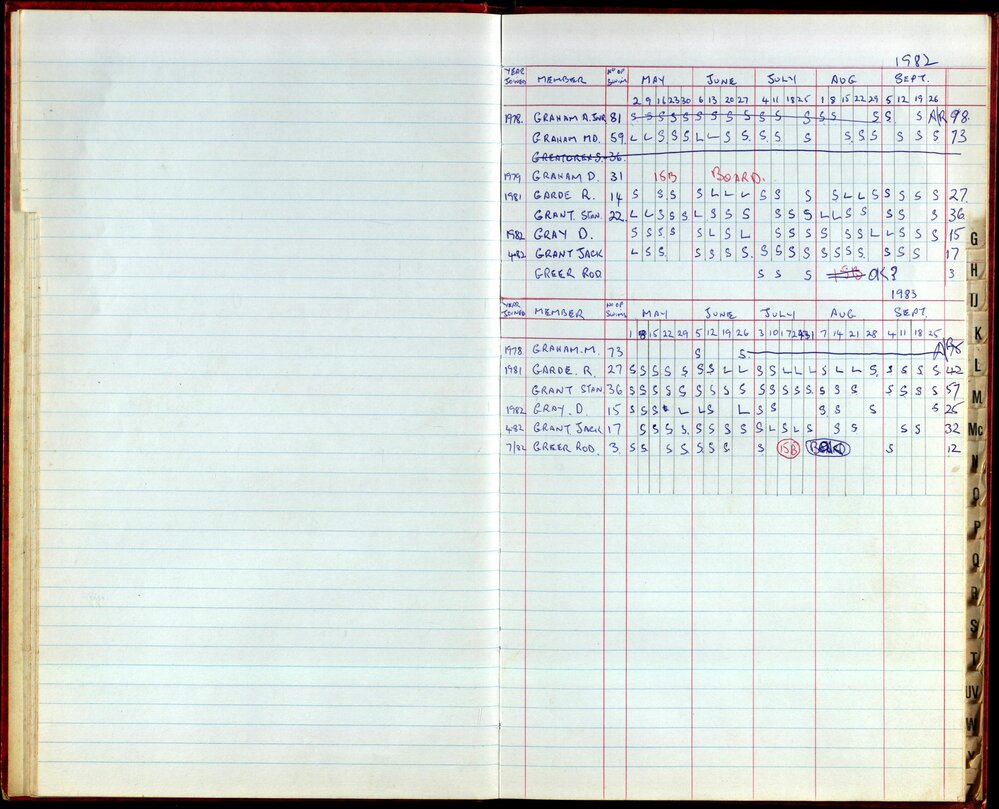 1982
YEAR JOINED MEMBER Nº OF SWIMS MAY JUNE JULY AUG SEPT.
2 9 16 23 30 6 13 20 27 4 11 18 25 1 8 15 22 29 5 12 19 26
1978. GRAHAM A. JNR 81 S S S S S S S S S S S S S S S S S 98
GRAHAM MD. 59 L L S S S L L S S S S S S S S S S S 73
GREATOREX S. 36
1979 GRAHAM D. 31 ISB BOARD.
1981 GARDE R. 14 S S S S L L L S S S S L L S S S S S 27
GRANT STAN. 22 L L S S S L S S S S S S L L S S S S S 36
1982 GRAY D. S S S S S L S L S S S S S S S L L S S S 15
4-82 GRANT JACK L S S S S S S S S S S S S S S S S S S 17
GREER ROD S S S ISB OK? 3
1983
YEAR JOINED MEMBER Nº OF SWIMS MAY JUNE JULY AUG SEPT.
1 8 15 22 29 5 12 19 26 3 10 17 24 31 7 14 21 28 4 11 18 25
1978 GRAHAM. M. 73 S S
1981 GARDE. R. 27 S S S S S S S L L S S L L L S L L S S S S S 42
GRANT STAN 36 S S S S S S S S S S S S S S S S S S S S S 57
1982 GRAY. D. 15 S S S L L S L S S S S S S 25
4-82 GRANT JACK 17 S S S S S S S S S L S L S S S S S 32
7/82 GREER ROD. 3. S S S S S S S S ISB S 12
G
H
IJ
K
L
M
Mc
N
O
P
Q
R
S
T
UV
W
Y